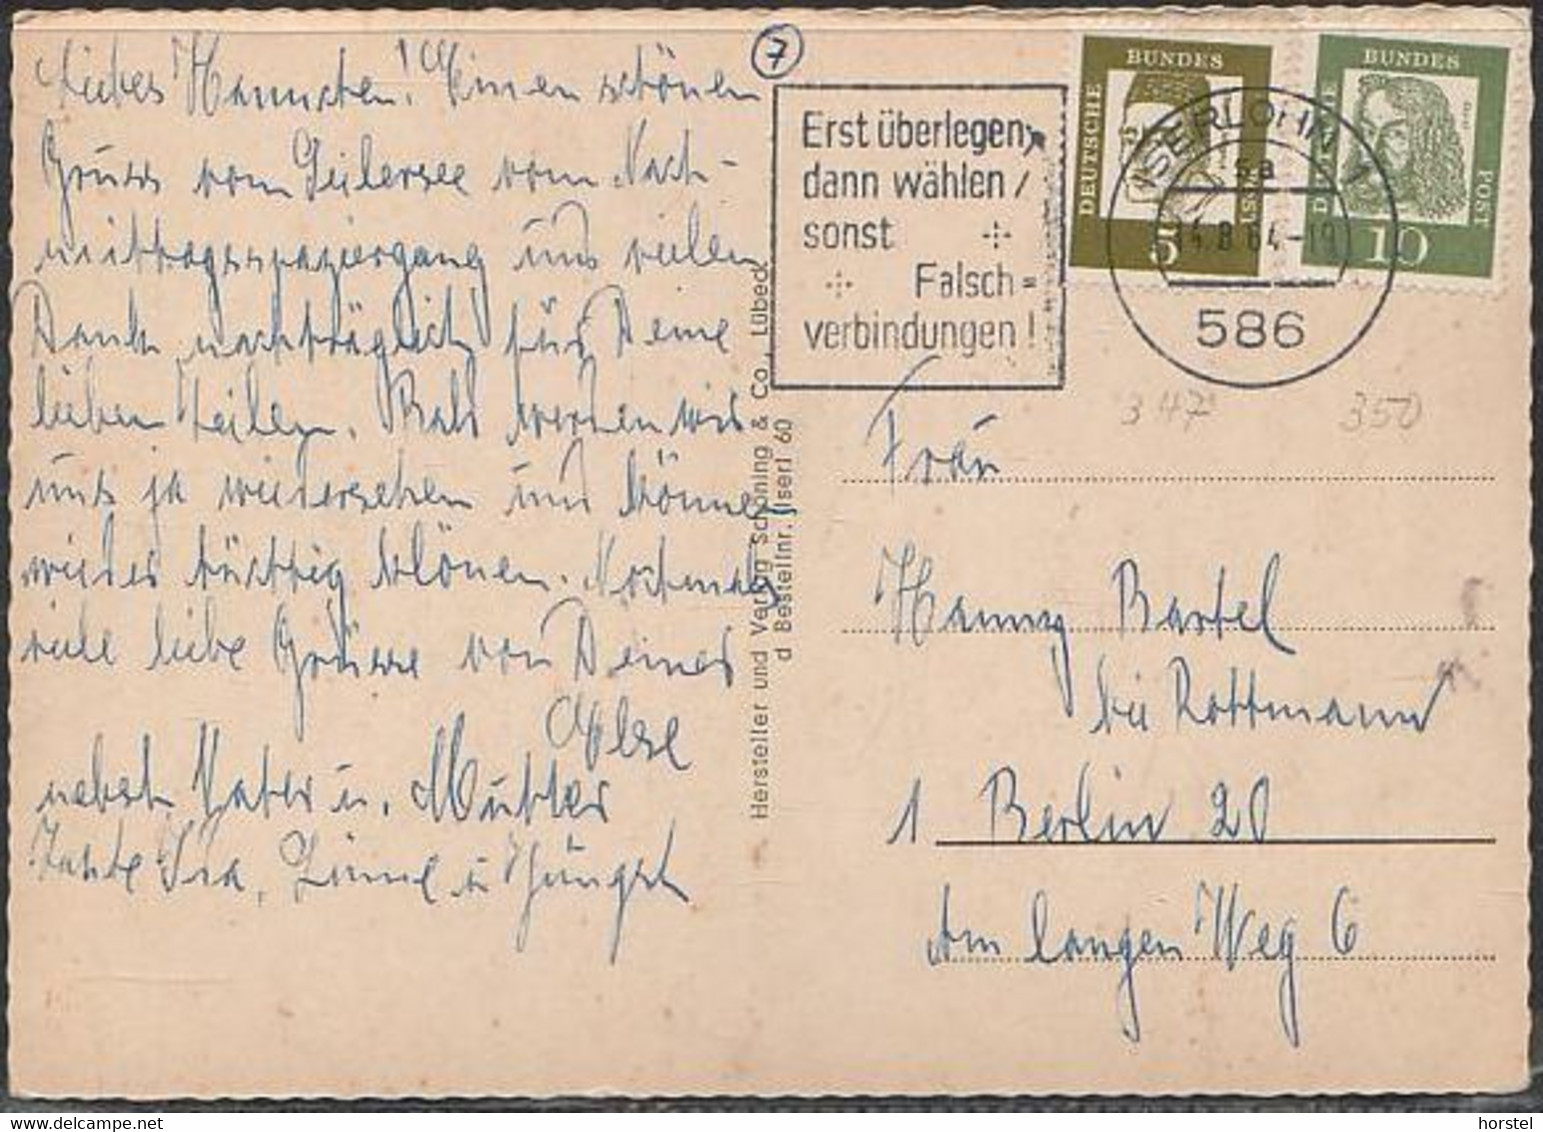 Liebes Hannchen! Einen schönen
Gruss vom Seilersee vom Nach-
mittagsspaziergang und vielen
Dank nachträglich für Deine
lieben Zeilen. Bald werden wir
uns ja wiedersehen und können
wieder tüchtig klönen. Nochmals
viele liebe Grüsse von Deiner
Else
nebst Vater u. Mutter
Tante Ida, u
7
Erst überlegen,
dann wählen /
sonst
Falsch=
verbindungen!
DEUTSCHE BUNDES
5
DEUTSCHE BUNDES POST
10
ISERLOHN 1
sa
14.8.64-19
586
347 350
Hersteller und Verlag Schöning & Co., Lübeck
d Bestellnr. Iserl 60
Frau
Hanny Bartel
bei Rottmann
1 Berlin 20
Am langen Weg 6
horstel